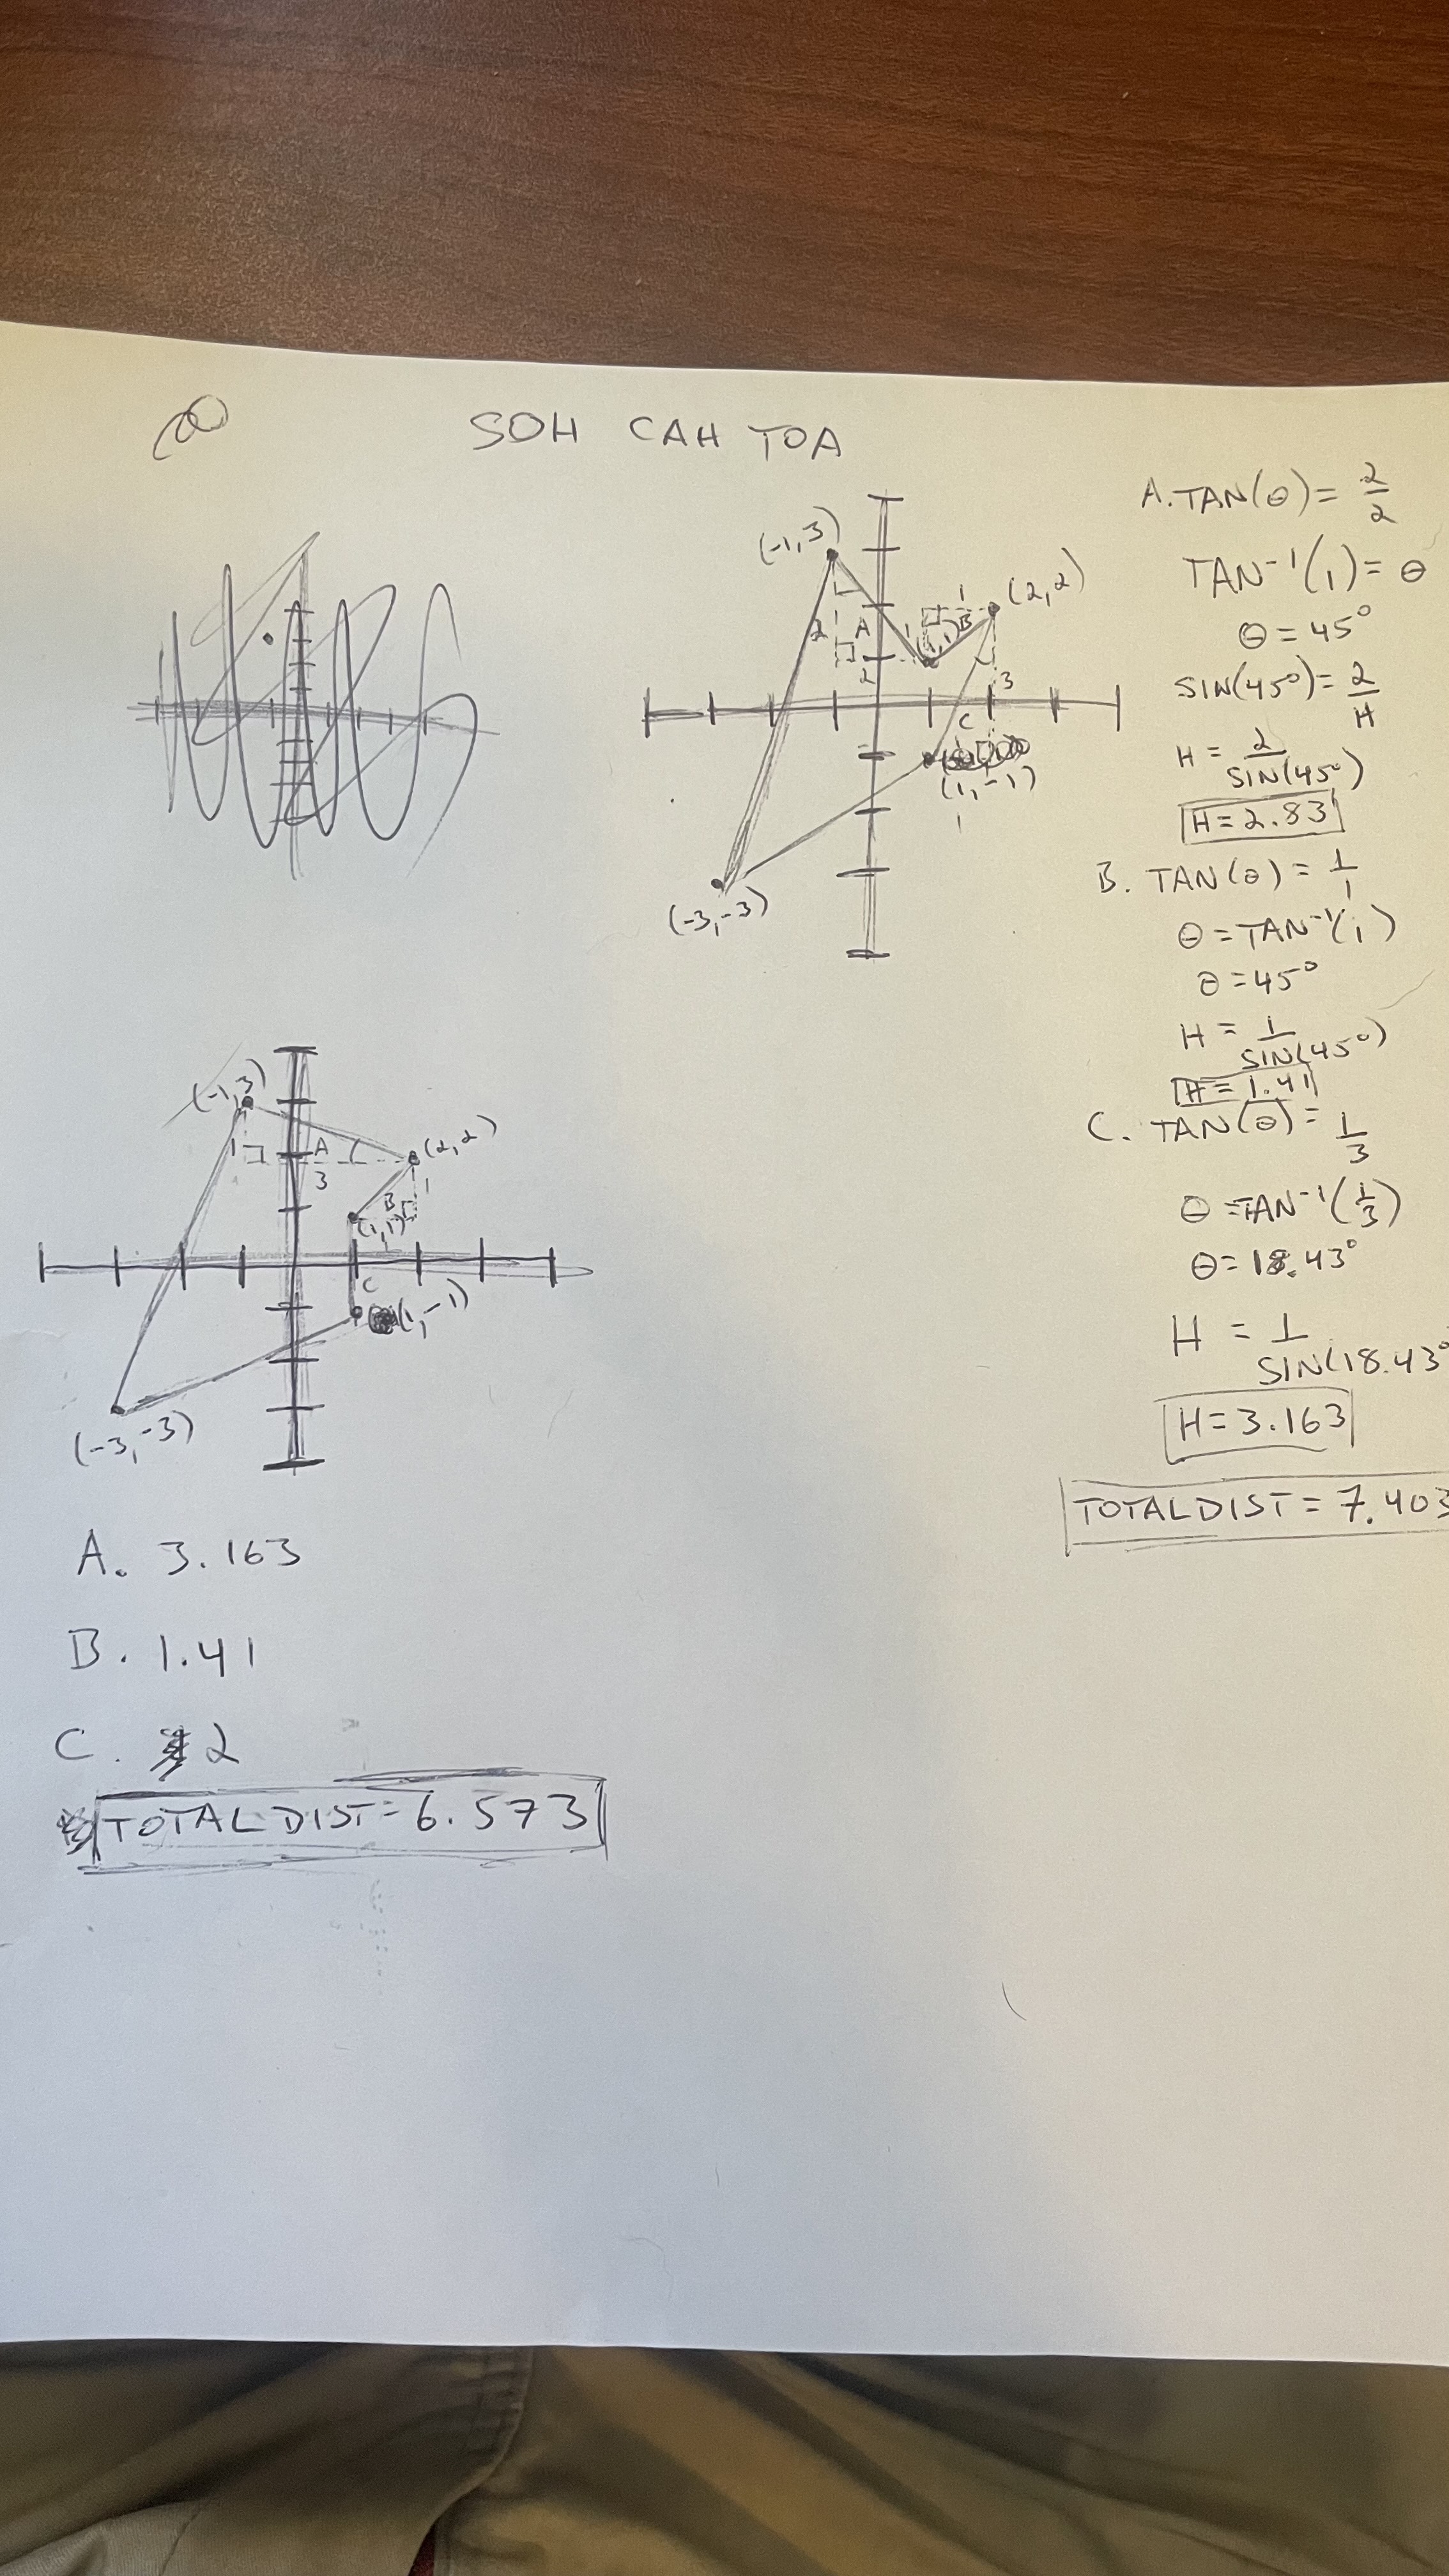 SOH CAH TOA
(-1,3)
(2,2)
1
1
2
A
B
1
(1,1)
2
3
C
1
(1,-1)
1
(-3,-3)
A. TAN(θ) = 2/2
TAN⁻¹(1) = θ
θ = 45°
SIN(45°) = 2/H
H = 2/SIN(45°)
H = 2.83
B. TAN(θ) = 1/1
θ = TAN⁻¹(1)
θ = 45°
H = 1/SIN(45°)
H = 1.41
C. TAN(θ) = 1/3
θ = TAN⁻¹(1/3)
θ = 18.43°
H = 1/SIN(18.43°
H = 3.163
TOTAL DIST = 7.403
(-1,3)
(2,2)
1
A
3
1
B
(1,1)
1
C
(1,-1)
(-3,-3)
A. 3.163
B. 1.41
C. 2
TOTAL DIST = 6.573